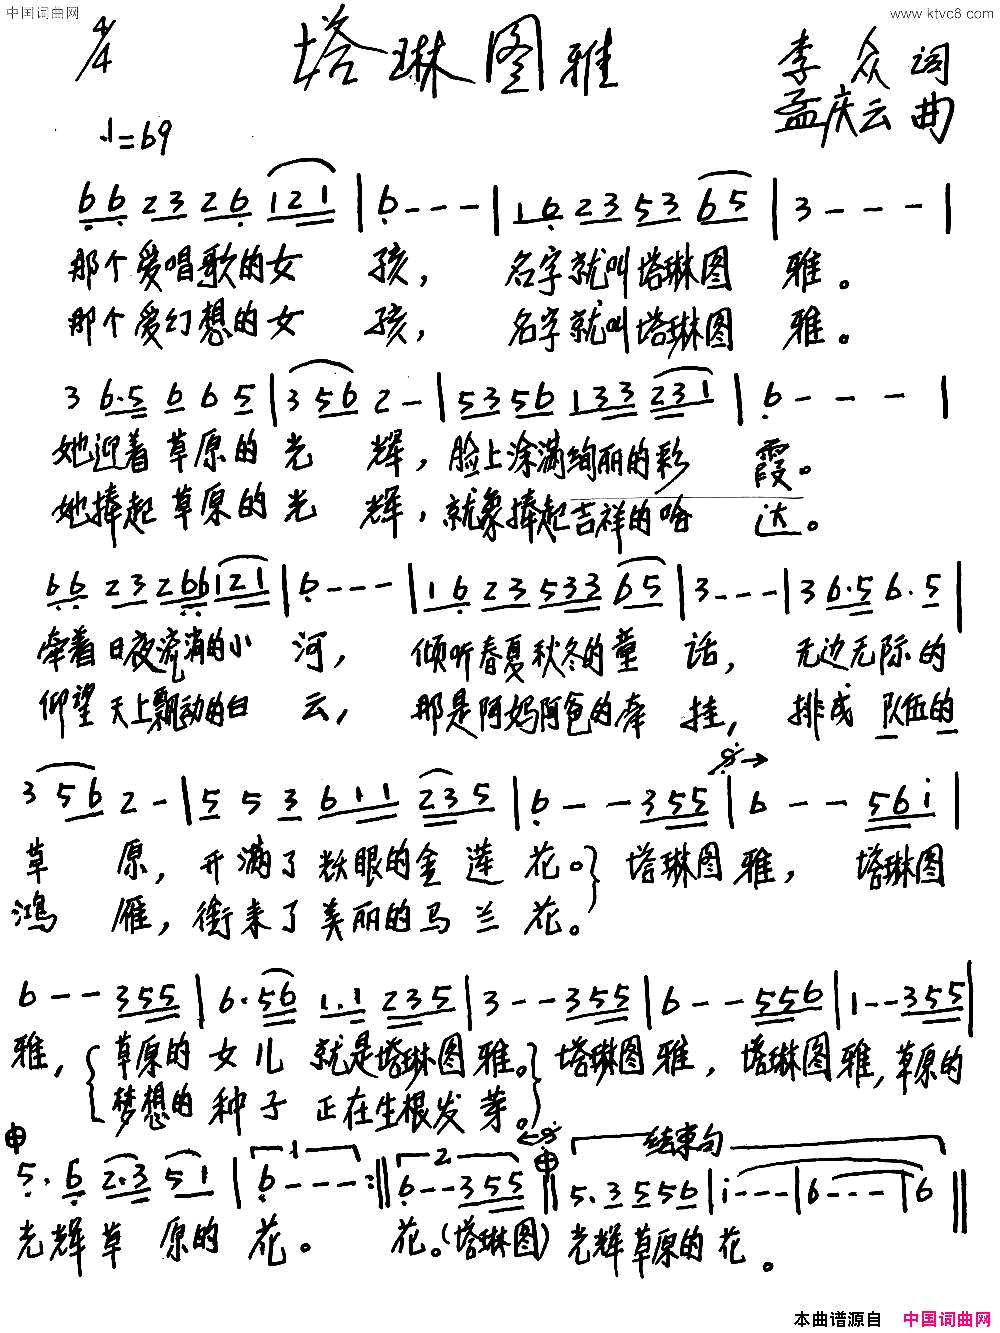 中国词曲网 www.ktvc8.com
4/4 塔琳图雅 李众 词
孟庆云 曲
♩=69
6 6 2 3 2 6 1 2 1 | 6 - - - | 1 6 2 3 5 3 6 5 | 3 - - - |
那个爱唱歌的女 孩， 名字就叫塔琳图 雅。
那个爱幻想的女 孩， 名字就叫塔琳图 雅。
3 6·5 6 6 5 | 3 5 6 2 - | 5 3 5 6 1 3 3 2 3 1 | 6 - - - |
她迎着 草原的 光 辉，脸上涂满绚丽的彩 霞。
她捧起 草原的 光 辉，就象捧起吉祥的哈 达。
6 6 2 3 2 6 6 1 2 1 | 6 - - - | 1 6 2 3 5 3 3 6 5 | 3 - - - | 3 6·5 6·5 |
牵着 日夜流淌的小 河， 倾听春夏秋冬的童 话， 无边无际的
仰望 天上飘动的白 云， 那是阿妈阿爸的牵 挂， 排成 队伍的
3 5 6 2 - | 5 5 3 6 1 1 2 3 5 | 6 - - 3 5 5 | 6 - - 5 6 i |
草 原，开满了 耀眼的金 莲 花。 塔琳图 雅， 塔琳图
鸿 雁，衔来了 美丽的马 兰 花。
6 - - 3 5 5 | 6·5 6 1·1 2 3 5 | 3 - - 3 5 5 | 6 - - 5 5 6 | 1 - - 3 5 5 |
雅， 草原的 女 儿 就是塔琳图 雅。 塔琳图 雅， 塔琳图 雅，草原的
梦想的 种 子 正在生根发 芽。
1 2 结束句
5·6 2·3 5 1 | 6 - - - :‖ 6 - - 3 5 5 ‖ 5·3 5 5 6 | i - - - | 6 - - - | 6 ‖
光辉草 原的 花。 花。(塔琳图) 光辉草原的花。
本曲谱源自 中国词曲网